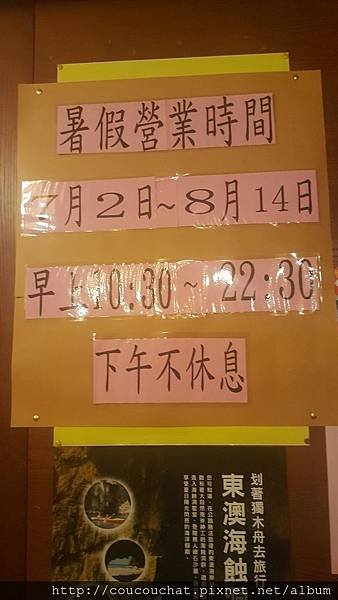 暑假營業時間
7月2日~8月14日
早上10:30~22:30
下午不休息
划著獨木舟去旅行
東澳海蝕
http://coucouchat.pixnet.net/album